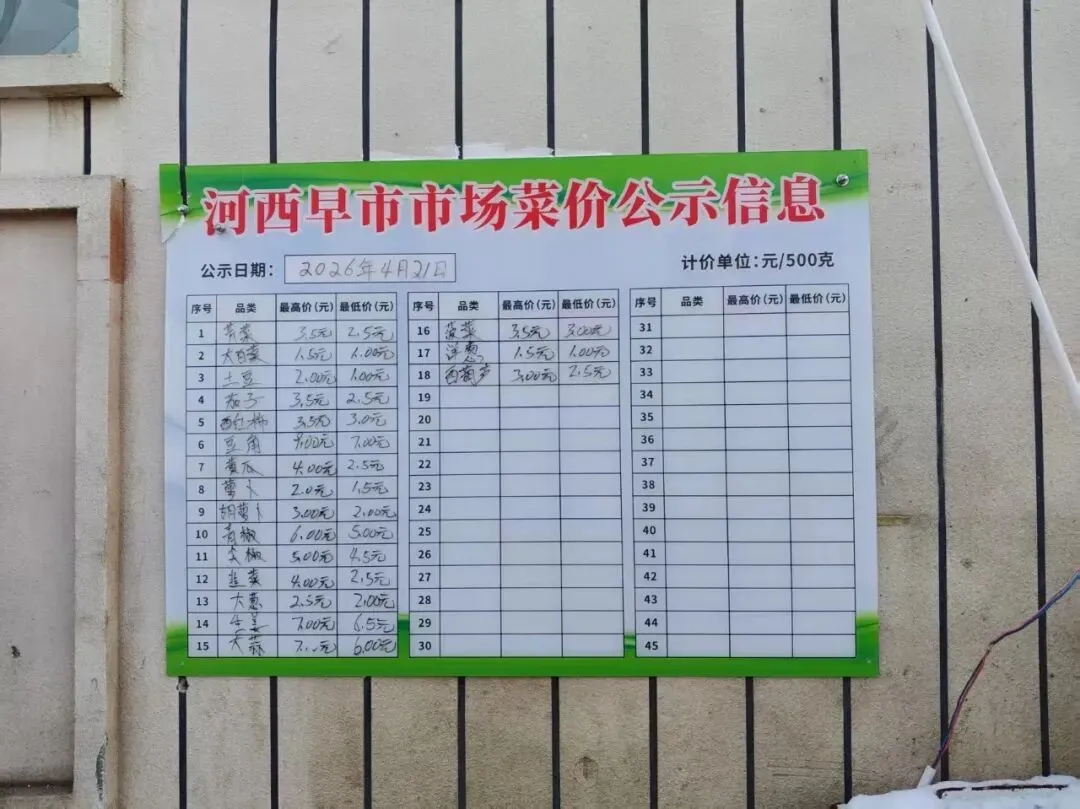 河西早市市场菜价公示信息
公示日期: 2026年4月21日
计价单位:元/500克
序号 品类 最高价(元) 最低价(元)
1 芹菜 3.5元 2.5元
2 大白菜 1.5元 1.00元
3 土豆 2.00元 1.00元
4 茄子 3.5元 2.5元
5 西红柿 3.5元 3.0元
6 豆角 7.00元
7 黄瓜 4.00元 2.5元
8 萝卜 2.0元 1.5元
9 胡萝卜 3.00元 2.00元
10 青椒 6.00元 5.00元
11 尖椒 5.00元 4.5元
12 韭菜 4.00元 2.5元
13 大葱 2.5元 2.00元
14 生姜 7.00元 6.5元
15 大蒜 6.00元
序号 品类 最高价(元) 最低价(元)
16 菠菜 3.5元 3.00元
17 洋葱 1.5元 1.00元
18 西葫芦 3.00元 2.5元
19
20
21
22
23
24
25
26
27
28
29
30
序号 品类 最高价(元) 最低价(元)
31
32
33
34
35
36
37
38
39
40
41
42
43
44
45